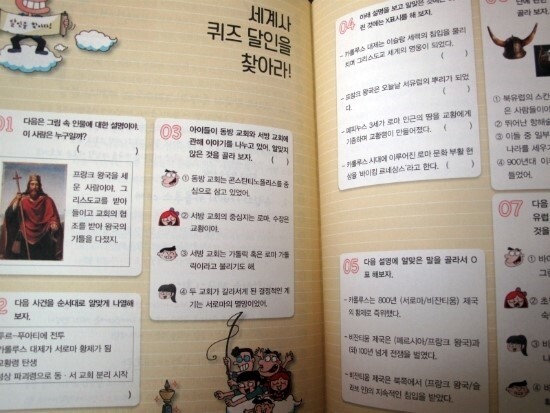 세계사
퀴즈 달인을
찾아라!
01
다음은 그림 속 인물에 대한 설명이야.
이 사람은 누구일까?
( )
프랑크 왕국을 세
운 사람이야. 그
리스도교를 받아
들이고 교회의 협
조를 받아 왕국의
기틀을 다졌지.
2
다음 사건을 순서대로 알맞게 나열해
보자.
투르-푸아티에 전투
카롤루스 대제가 서로마 황제가 됨
교황령 탄생
성상 파괴령으로 동·서 교회 분리 시작
03
아이들이 동방 교회와 서방 교회에
관해 이야기를 나누고 있어. 알맞지
않은 것을 골라 보자. ( )
① 동방 교회는 콘스탄티노폴리스를 중
심으로 삼고 있었어.
② 서방 교회의 중심지는 로마, 수장은
교황이야.
③ 서방 교회는 가톨릭 혹은 로마 가톨
릭이라고 불리기도 해.
④ 두 교회가 갈라서게 된 결정적인 계
기는 서로마의 멸망이었어.
04
아래 설명을 보고 알맞은 것에는
된 것에는 X표시를 해 보자.
- 카롤루스 대제는 이슬람 세력의 침입을 물리
치며 그리스도교 세계의 영웅이 되었다.
( )
- 프랑크 왕국은 오늘날 서유럽의 뿌리가 되었
다. ( )
- 피피누스 3세가 로마 인근의 땅을 교황에게
기증하며 교황령이 만들어졌다. ( )
- 카롤루스 시대에 이루어진 로마 문화 부활 현
상을 '바이킹 르네상스'라고 한다. ( )
05
다음 설명에 알맞은 말을 골라서 O
표 해보자.
- 카롤루스는 800년 (서로마/비잔티움) 제국
의 황제로 즉위했다.
- 비잔티움 제국은 (페르시아/프랑크 왕국)과
(와) 100년 넘게 전쟁을 벌였다.
- 비잔티움 제국은 북쪽에서 (프랑크 왕국/슬
라브 인)의 지속적인 침입을 받았다.
① 북유럽의 스칸
은 사람들이야
② 뛰어난 항해술
③ 이들 중 일부
나라를 세우기
④ 900년대 이
07
다음
유럽
것을
①
②
③
④